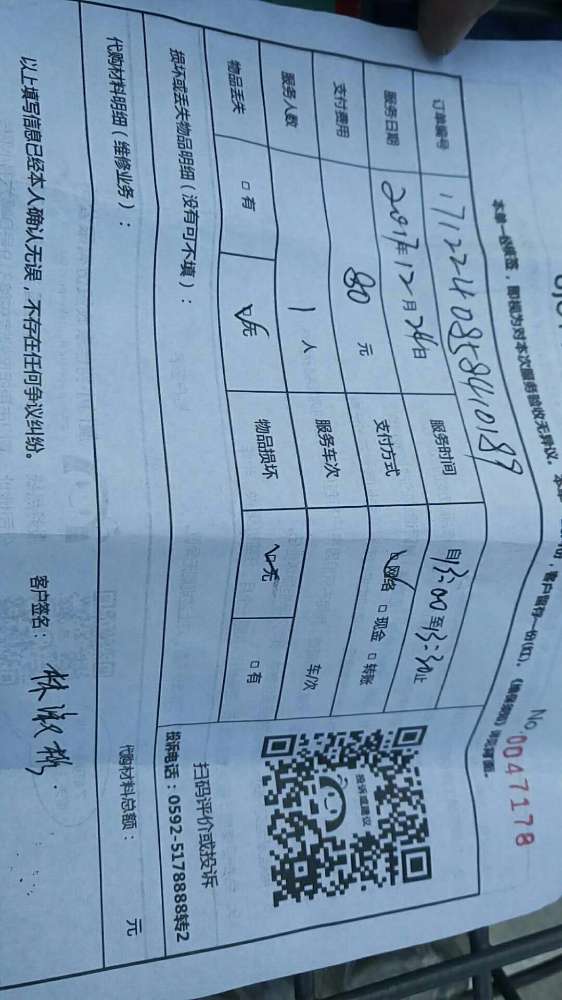 No 0047178
本单一经签, 即视为对本次服务验收无异议。
客户留存一份(红)。
订单编号 171224085840189
服务日期 2017年12月24日 服务时间 自13:00至13:30止
支付费用 80 元 支付方式 ☑网络 □现金 □转账
服务人数 1 人 服务车次 车/次
物品丢失 □有 ☑无 物品损坏 ☑无 □有
损坏或丢失物品明细(没有可不填):
代购材料明细(维修业务):
代购材料总额: 元
投诉或建议
扫码评价或投诉
投诉电话:0592-5178888转2
以上填写信息已经本人确认无误,不存在任何争议纠纷。 客户签名: 林淑